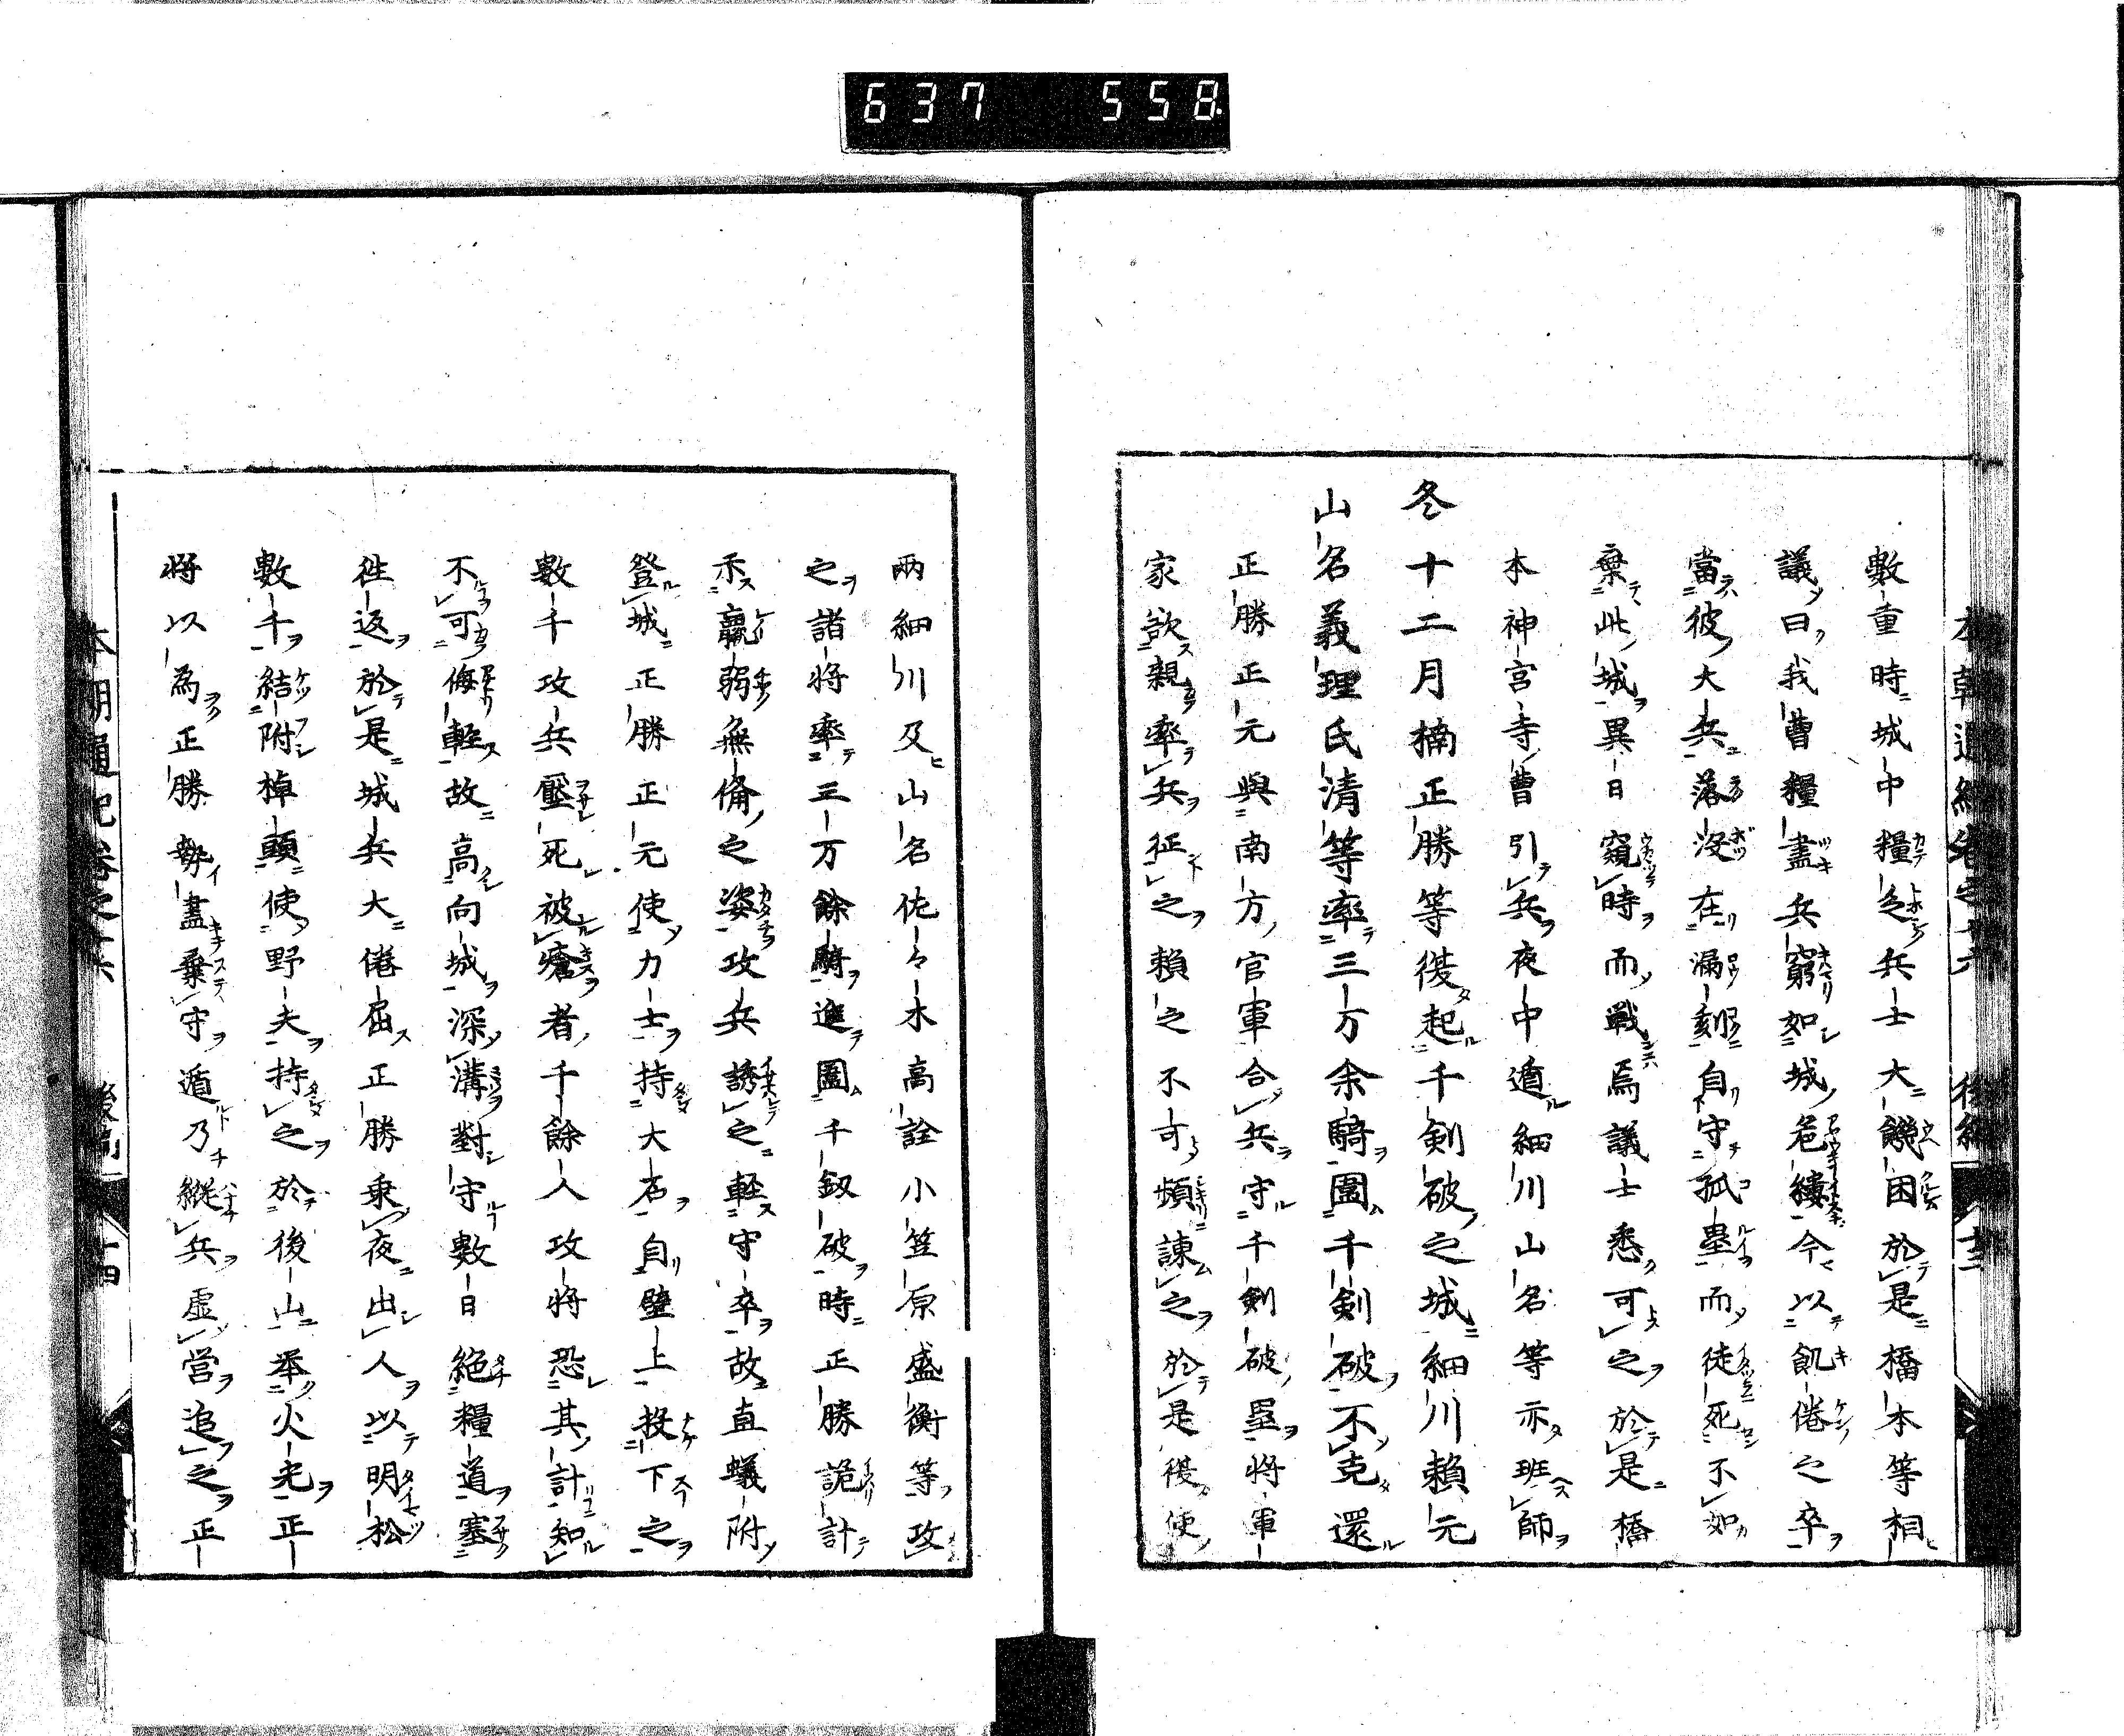 637 558
數重時城中糧乏兵士大饑困於是橋本等相
議曰我曹糧盡兵窮如城危縷今以飢倦之卒
當彼大兵落没在漏刻自守孤壘而徒死不如
棄此城異日窺時而戰焉議士悉可之於是橋
本神宮寺曹引兵夜中遁細川山名等亦班師
冬十二月楠正勝等復起千剣破之城細川頼元
山名義理氏清等率三万余騎圍千剣破不克還
正勝正元與南方官軍合兵守千剣破塁将軍
家欲親率兵征之頼之不可頻諌之於是復使
兩細川及山名佐々木高詮小笠原盛衡等攻
之諸将率三万餘騎進圍千釼破時正勝詭計
示羸弱無備之姿攻兵誘之軽守卒故直蟻附
登城正勝正元使力士持大石自壁上投下之
數千攻兵壓死被瘡者千餘人攻将恐其計知
不可侮軽故高向城深溝對守數日絶糧道塞
往返於是城兵大倦屈正勝乗夜出人以明松
數千結附棹頭使野夫持之於後山挙火光正
将以為正勝勢盡棄守遁乃縦兵虚営追之正
本朝通紀巻之六 後編 十四